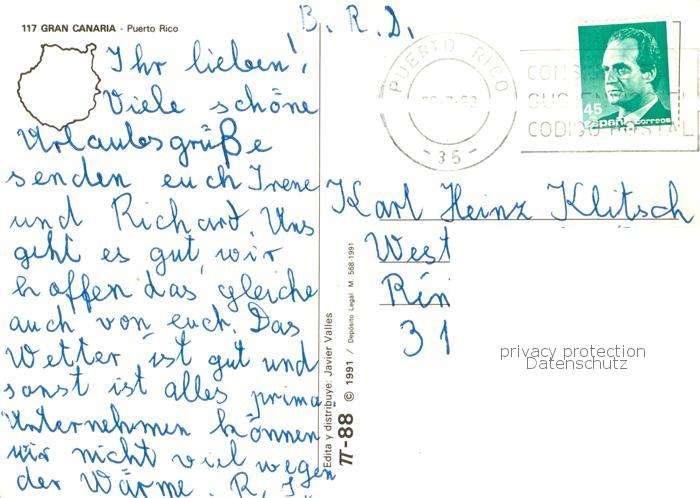 117 GRAN CANARIA - Puerto Rico
B. R. D.
Ihr lieben!
Viele schöne
Urlaubsgrüße
senden euch Irene
und Richard. Uns
geht es gut, wir
hoffen das gleiche
auch von euch. Das
Wetter ist gut und
sonst ist alles prima
Unternehmen können
wir nicht viel wegen
der Wärme. R. I.
Edita y distribuye: Javier Valles
π-88 © 1991 / Depósito Legal M. 568-1991
PUERTO RICO
-35-
CODIGO POSTAL
45
España correos
Karl Heinz Klitsch
West
Rin
31
privacy protection
Datenschutz